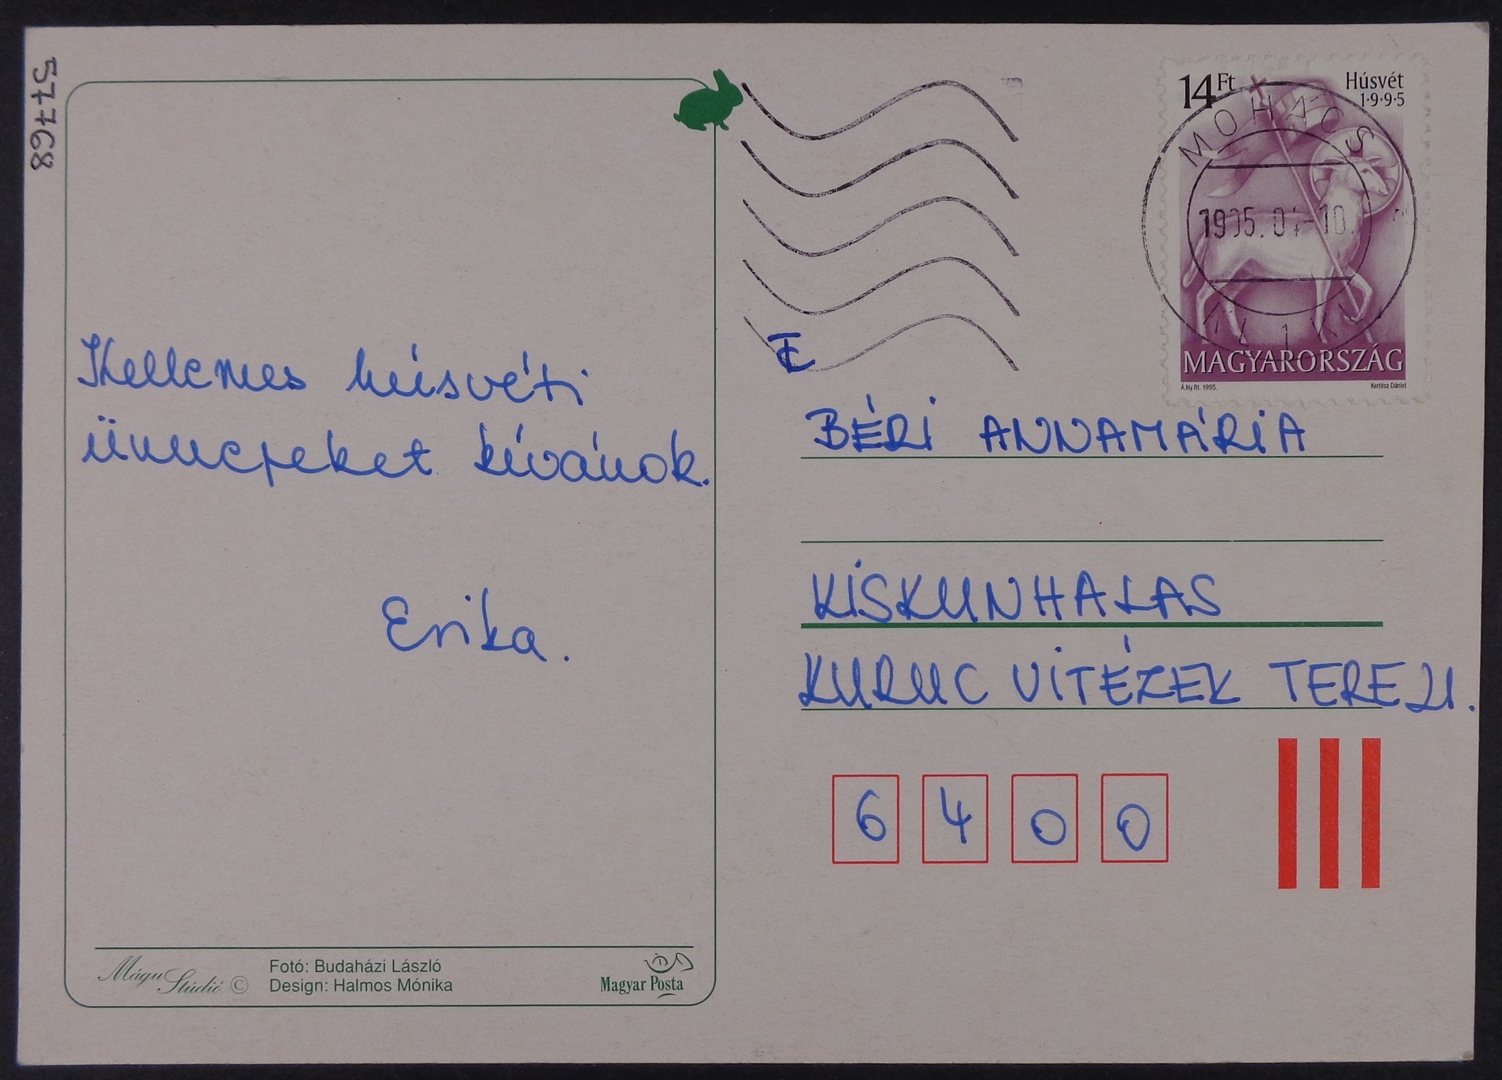 57768
Kellemes húsvéti
ünnepeket kívánok.
Erika.
Mágus Stúdió ©
Fotó: Budaházi László
Design: Halmos Mónika
Magyar Posta
14 Ft
Húsvét
1·9·9·5
MOHÁCS
1995.04-10.
MAGYARORSZÁG
Á.Ny.Rt. 1995.
Kertész Dániel
BÉRI ANNAMÁRIA
KISKUNHALAS
KURUC VITÉZEK TERE 21.
6 4 0 0